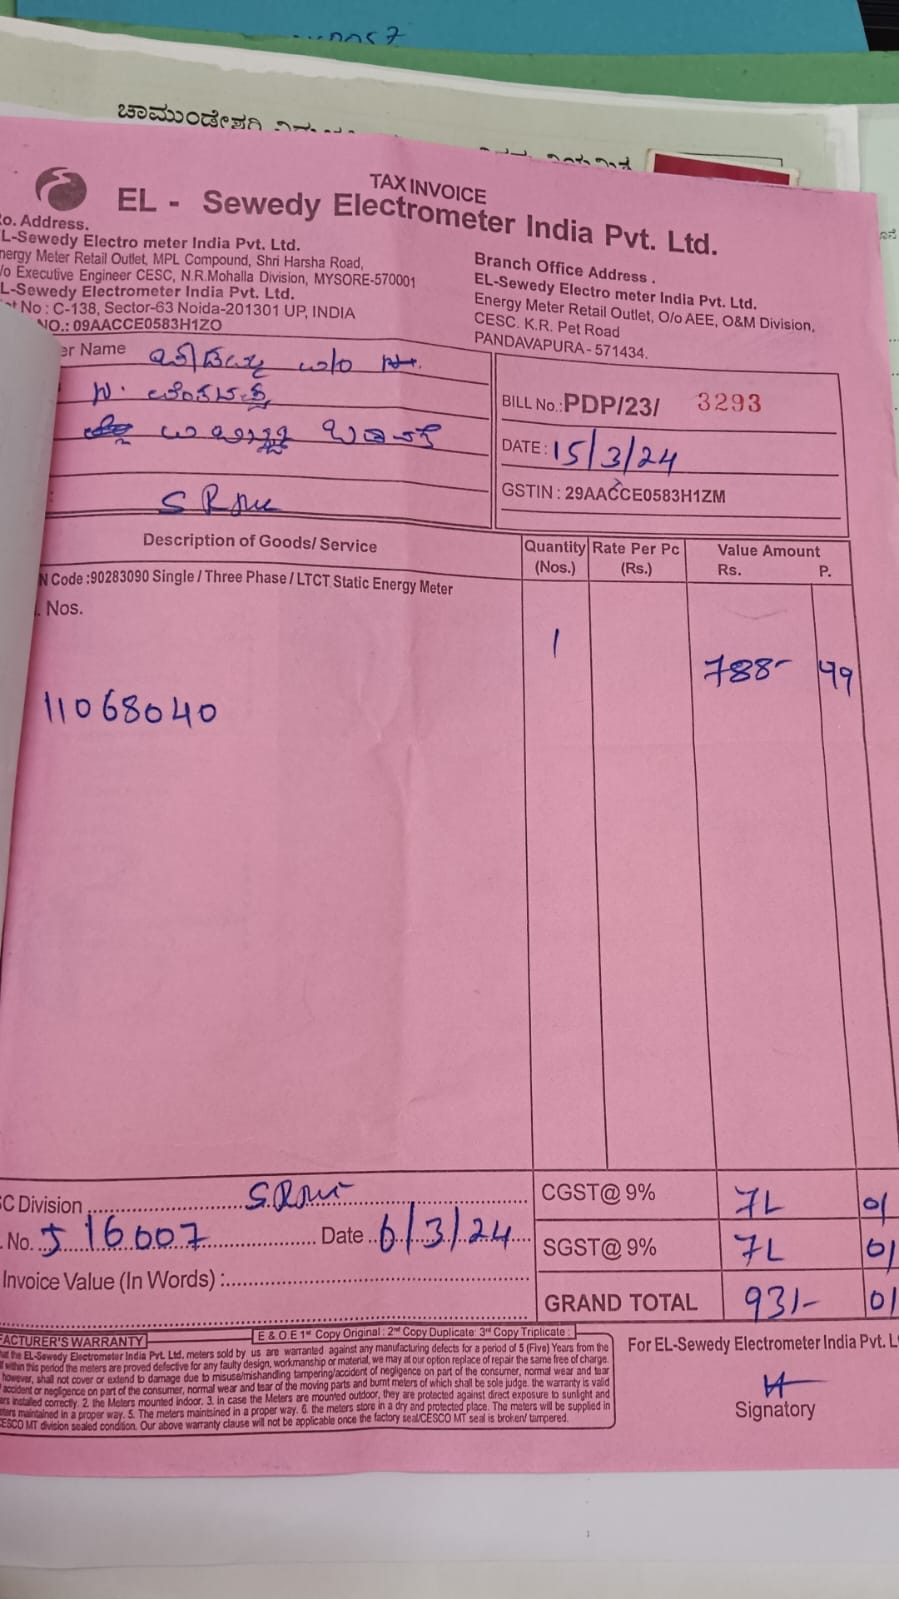 0057
ಚಾಮುಂಡೇಶ್ವರಿ
TAX INVOICE
EL - Sewedy Electrometer India Pvt. Ltd.
o. Address.
L-Sewedy Electro meter India Pvt. Ltd.
nergy Meter Retail Outlet, MPL Compound, Shri Harsha Road,
/o Executive Engineer CESC, N.R.Mohalla Division, MYSORE-570001
L-Sewedy Electrometer India Pvt. Ltd.
No : C-138, Sector-63 Noida-201301 UP, INDIA
NO.: 09AACCE0583H1ZO
Branch Office Address .
EL-Sewedy Electro meter India Pvt. Ltd.
Energy Meter Retail Outlet, O/o AEE, O&M Division,
CESC. K.R. Pet Road
PANDAVAPURA - 571434.
er Name
BILL No.: PDP/23/ 3293
DATE : 15/3/24
GSTIN : 29AACCE0583H1ZM
Description of Goods/ Service
Quantity (Nos.)
Rate Per Pc (Rs.)
Value Amount
Rs. P.
N Code :90283090 Single / Three Phase / LTCT Static Energy Meter
. Nos.
1
788- 49
11068040
C Division
CGST@ 9% 71 01
. No. 516007 Date 6/3/24
SGST@ 9% 71 01
Invoice Value (In Words) :
GRAND TOTAL 931- 01
E & O E 1st Copy Original : 2nd Copy Duplicate: 3rd Copy Triplicate :
FACTURER'S WARRANTY
hat the EL-Sewedy Electrometer India Pvt. Ltd. meters sold by us are warranted against any manufacturing defects for a period of 5 (Five) Years from the
If within this period the meters are proved defective for any faulty design, workmanship or material, we may at our option replace of repair the same free of charge.
however, shall not cover or extend to damage due to misuse/mishandling tampering/accident of negligence on part of the consumer, normal wear and tear
accident or negligence on part of the consumer, normal wear and tear of the moving parts and burnt meters of which shall be sole judge. the warranty is valid
ers installed correctly. 2. the Meters mounted indoor. 3. in case the Meters are mounted outdoor, they are protected against direct exposure to sunlight and
ters maintained in a proper way. 5. The meters maintsined in a proper way. 6. the meters store in a dry and protected place. The meters will be supplied in
CESCO MT division sealed condition. Our above warranty clause will not be applicable once the factory seal/CESCO MT seal is broken/ tampered.
For EL-Sewedy Electrometer India Pvt. L
Signatory